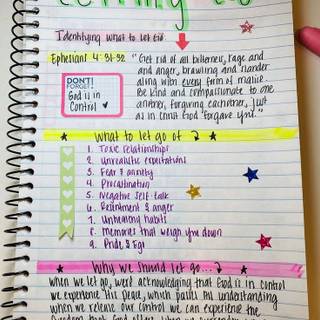 Letting Go
Identifying what to let go.
Ephesians 4:31-32 "Get rid of all bitterness, rage and
and anger, brawling and slander
along with every form of malice.
Be kind and compassionate to one
another, forgiving eachother, just
as in christ God forgave you."
DON'T
FORGET!
God is in
Control
What to let go of
1. Toxic relationships
2. Unrealistic expectations
3. Fear & anxiety
4. Procrastination
5. Negative self-talk
6. Resentment & anger
7. Unhealthy habits
8. Memories that weigh you down
9. Pride & Ego
Why we should let go...
When we let go, we're acknowledging that God is in control
we experience His peace, which passes all understanding
when we release our control we can experience the
freedom that God offers when we surrender